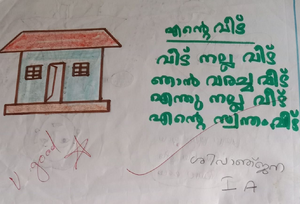 എന്റെ വീട്
വീട് നല്ല വീട്
ഞാൻ വരച്ച വീട്
എന്തു നല്ല വീട്
എന്റെ സ്വന്തം വീട്
V. good
ശിവാഞ്ജന
I A